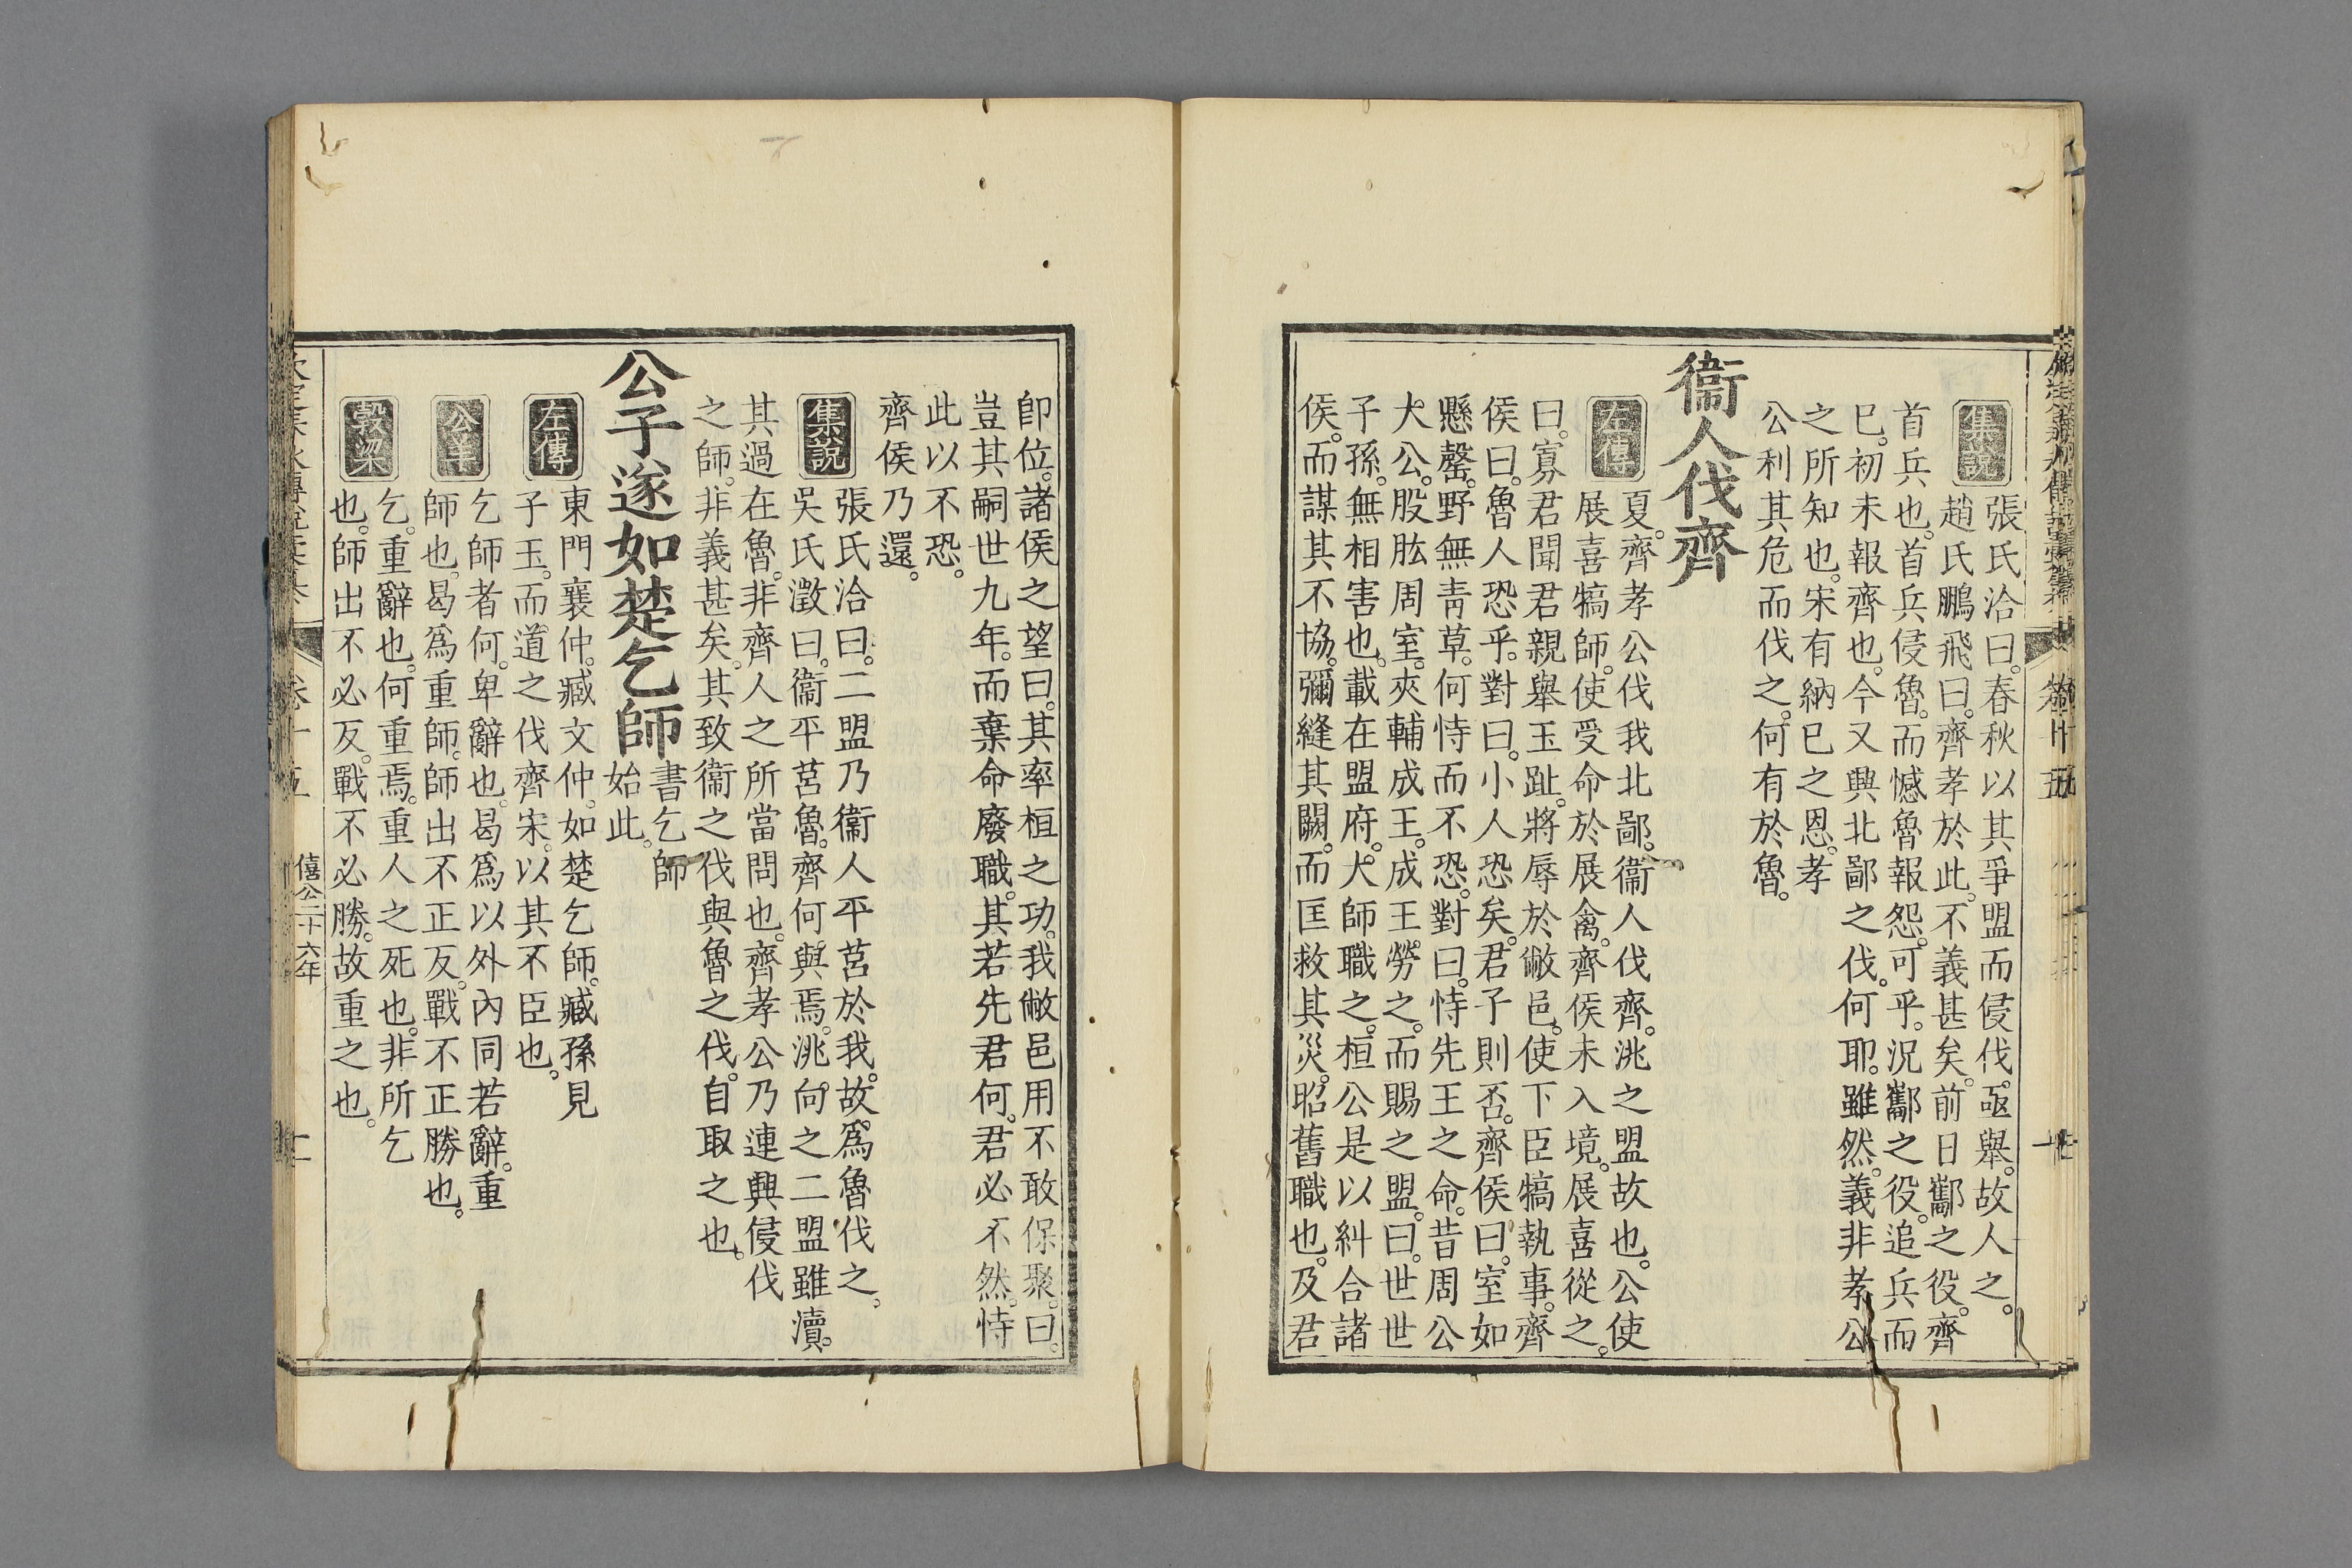 集說
張氏洽曰。春秋以其爭盟而侵伐。亟舉。故人之。
趙氏鵬飛曰。齊孝於此。不義甚矣。前日酅之役。齊
首兵也。首兵侵魯。而憾魯報怨。可乎。況酅之役。追兵而
已。初未報齊也。今又興北鄙之伐。何耶。雖然。義非孝公
之所知也。宋有納已之恩。孝
公利其危而伐之。何有於魯。
衞人伐齊
左傳
夏。齊孝公伐我北鄙。衞人伐齊。洮之盟故也。公使
展喜犒師。使受命於展禽。齊侯未入境。展喜從之。
曰。寡君聞君親舉玉趾。將辱於敝邑。使下臣犒執事。齊
侯曰。魯人恐乎。對曰。小人恐矣。君子則否。齊侯曰。室如
懸罄。野無靑草。何恃而不恐。對曰。恃先王之命。昔周公
大公。股肱周室。夾輔成王。成王勞之。而賜之盟。曰。世世
子孫。無相害也。載在盟府。大師職之。桓公是以糾合諸
侯。而謀其不協。彌縫其闕。而匡救其災。昭舊職也。及君
卽位。諸侯之望曰。其率桓之功。我敝邑用不敢保聚。曰。
豈其嗣世九年。而棄命廢職。其若先君何。君必不然。恃
此以不恐。
齊侯乃還。
集說
張氏洽曰。二盟乃衞人平莒於我。故爲魯伐之。
吳氏澂曰。衞平莒魯。齊何與焉。洮向之二盟雖瀆。
其過在魯。非齊人之所當問也。齊孝公乃連興侵伐
之師。非義甚矣。其致衞之伐與魯之伐。自取之也。
公子遂如楚乞師
書乞師
始此。
左傳
東門襄仲。臧文仲。如楚乞師。臧孫見
子玉。而道之伐齊宋。以其不臣也。
公羊
乞師者何。卑辭也。曷爲以外內同若辭。重
師也。曷爲重師。師出不正反。戰不正勝也。
穀梁
乞。重辭也。何重焉。重人之死也。非所乞
也。師出不必反。戰不必勝。故重之也。
卷十五
僖公二十六年